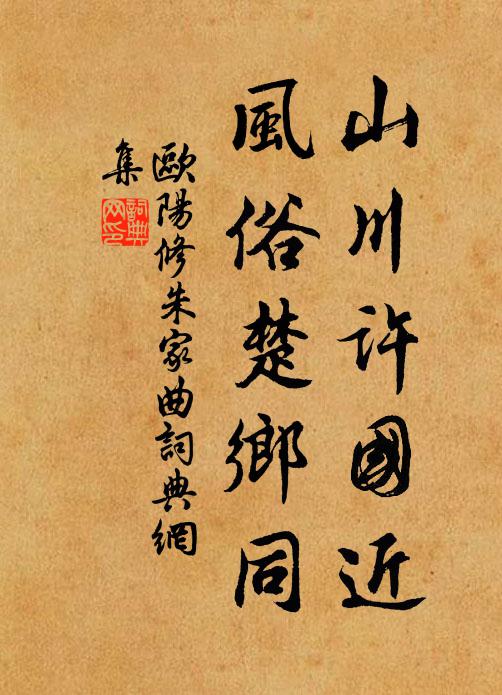 山川許國近
風俗楚鄉同
歐陽修朱家曲詞典網
集
詞典網印